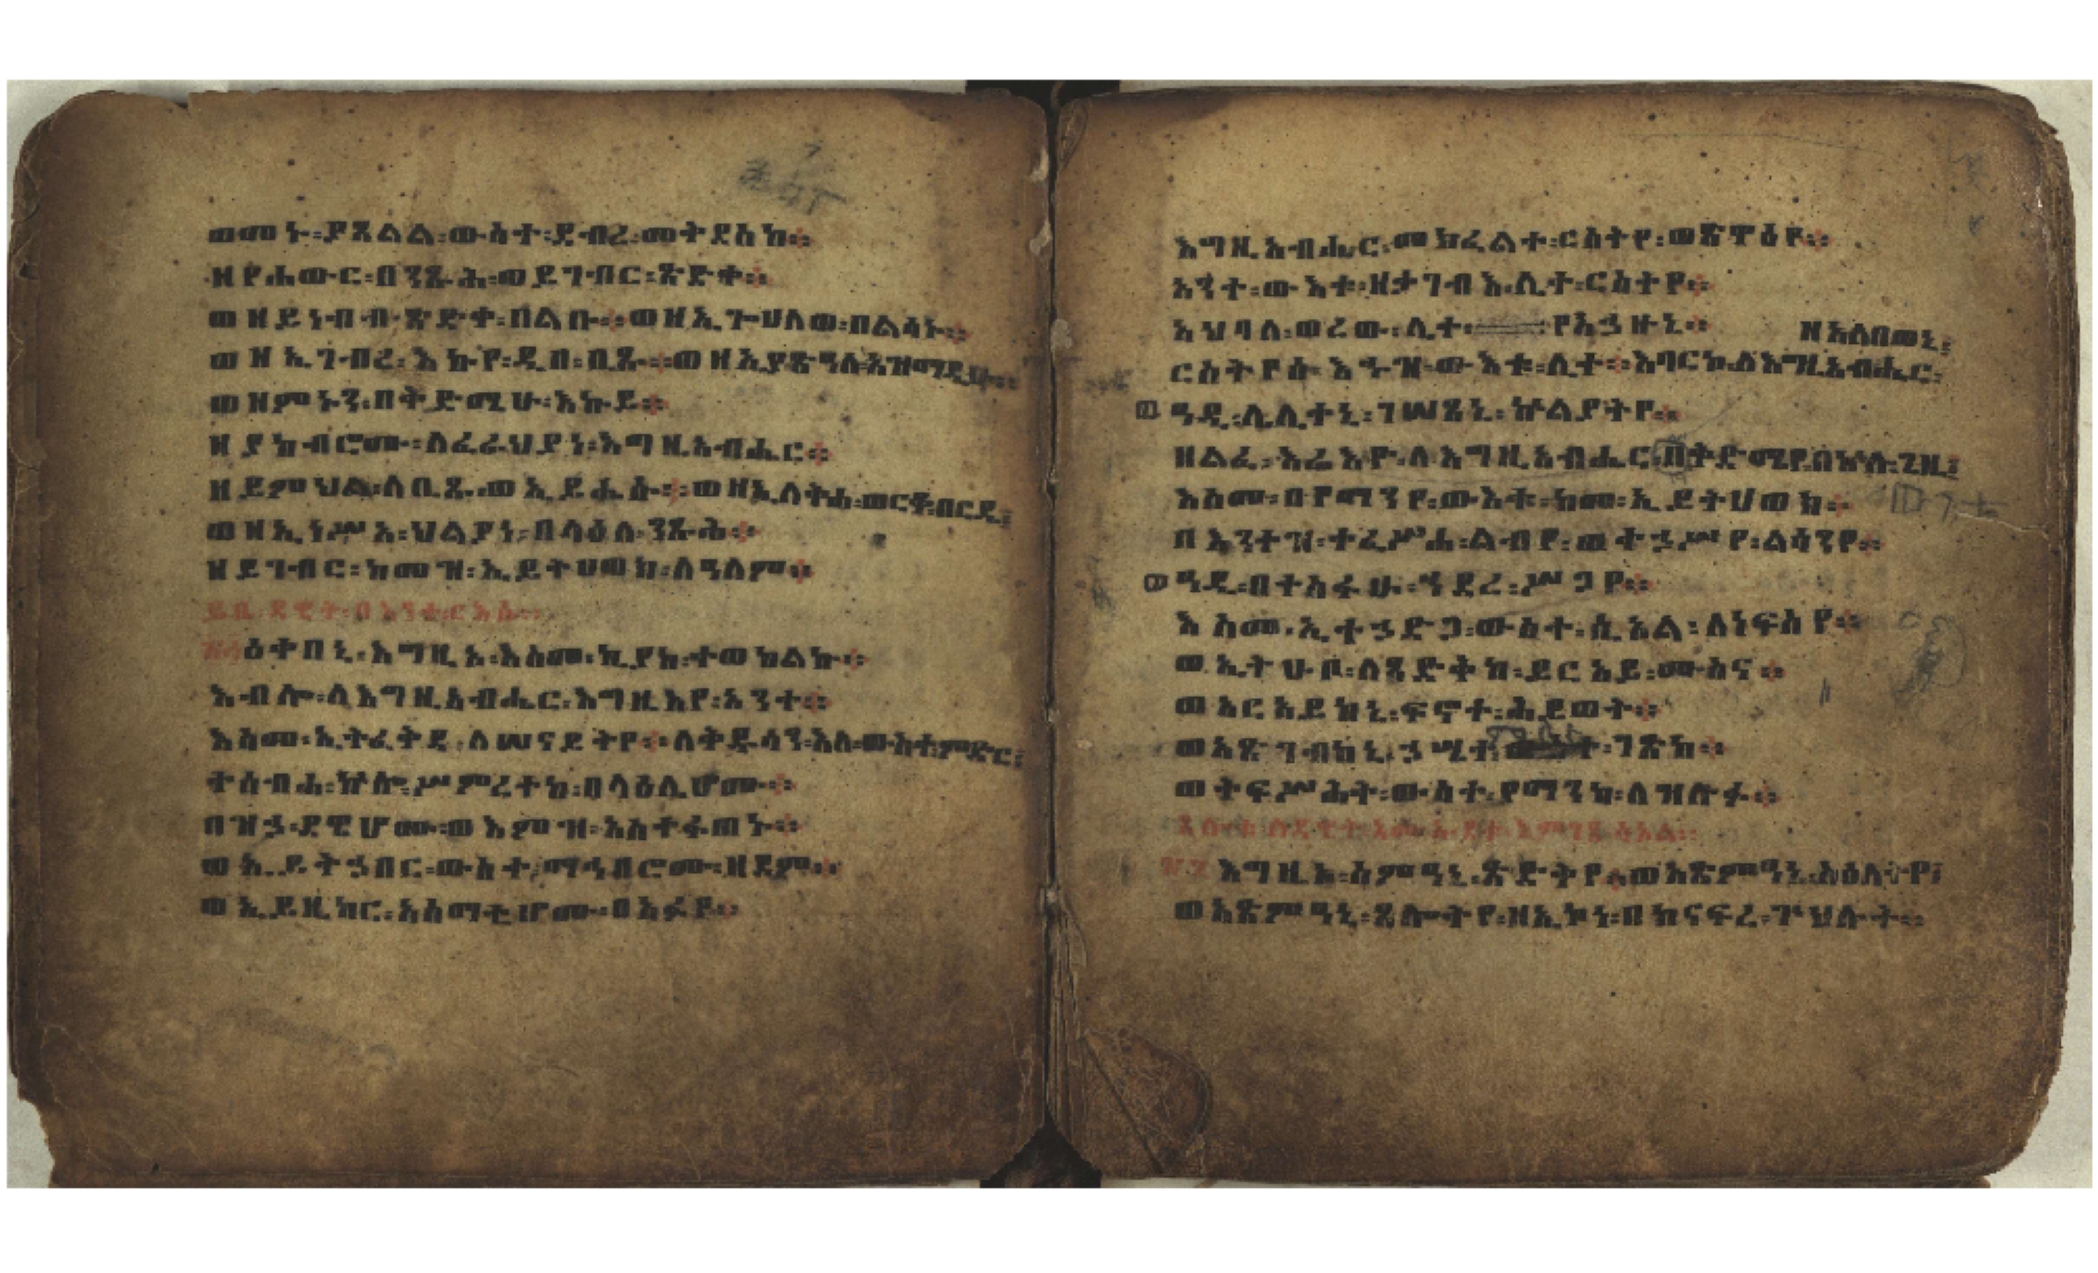 ወመኑ፡ያጸልል፡ውስተ፡ደብረ፡መቅደስከ።
ዘየሐውር፡በንጹሕ፡ወይገብር፡ጽድቀ።
ወዘይነብብ፡ጽድቀ፡በልቡ።ወዘኢጕህለወ፡በልሳኑ።
ወዘኢገብረ፡እኩየ፡ዲበ፡ቢጹ።ወዘኢያጽዓለ፡አዝማዲሁ።
ወዘምኑን፡በቅድሜሁ፡እኩይ።
ዘያከብሮሙ፡ለፈራህያነ፡እግዚአብሔር።
ዘይምህል፡ለቢጹ፡ወኢይሔሱ።ወዘኢለቅሐ፡ወርቆ፡በርዴ፤
ወዘኢነሥአ፡ህልያነ፡በላዕለ፡ንጹሕ።
ዘይገብር፡ከመዝ፡ኢይትሀወክ፡ለዓለም።
ዕቀበኒ፡እግዚኦ፡እስመ፡ኪያከ፡ተወከልኩ።
እብሎ፡ለእግዚአብሔር፡እግዚእየ፡አንተ።
እስመ፡ኢትፈቅዳ፡ለሠናይትየ።ለቅዱሳን፡እለ፡ውስተ፡ምድር፤
ተሰብሐ፡ኵሎ፡ሥምረተከ፡በላዕሌሆሙ።
በዝኃ፡ደዌሆሙ፡ወእምዝ፡አስተፋጠኑ።
ወኢይትኃበር፡ውስተ፡ማኅበሮሙ፡ዘደም።
ወኢይዜከር፡አስማቲሆሙ፡በአፉየ።
እግዚአብሔር፡መክፈልተ፡ርስትየ፡ወጽዋዕየ።
አንተ፡ውእቱ፡ዘታገብእ፡ሊተ፡ርስትየ።
አህባለ፡ወረው፡ሊተ፡የአኃዙኒ።
ርስትየሰ፡እኁዝ፡ውእቱ፡ሊተ።እባርኮ፡ለእግዚአብሔር፡
ዘአለበወኒ፤
ዓዲ፡ሌሊተኒ፡ገሠጻኒ፡ኵልያትየ።
ዘልፈ፡እሬእዮ፡ለእግዚአብሔር፡በቅድሜየ፡በኵሉ፡ጊዜ፤
እስመ፡በየማንየ፡ውእቱ፡ከመ፡ኢይትሀወክ።
በእንተዝ፡ተፈሥሐ፡ልብየ፡ወተኃሥየ፡ልሳንየ።
ዓዲ፡በተስፋሁ፡ኀደረ፡ሥጋየ።
እስመ፡ኢተኃድጋ፡ውስተ፡ሲኦል፡ለነፍስየ።
ወኢትሁቦ፡ለጻድቅከ፡ይርአይ፡ሙስና።
ወአርአይከኒ፡ፍኖተ፡ሕይወት።
ወአጽገብከኒ፡ኃሤተ፡ገጽከ።
ወትፍሥሕት፡ውስተ፡የማንከ፡ለዝሉፉ።
እግዚኦ፡ስምዓኒ፡ጽድቅየ።ወአጽምዓኒ፡ስዕለትየ፤
ወአጽምዓኒ፡ጸሎትየ፡ዘኢኮነ፡በከናፍረ፡ጕህሉት።